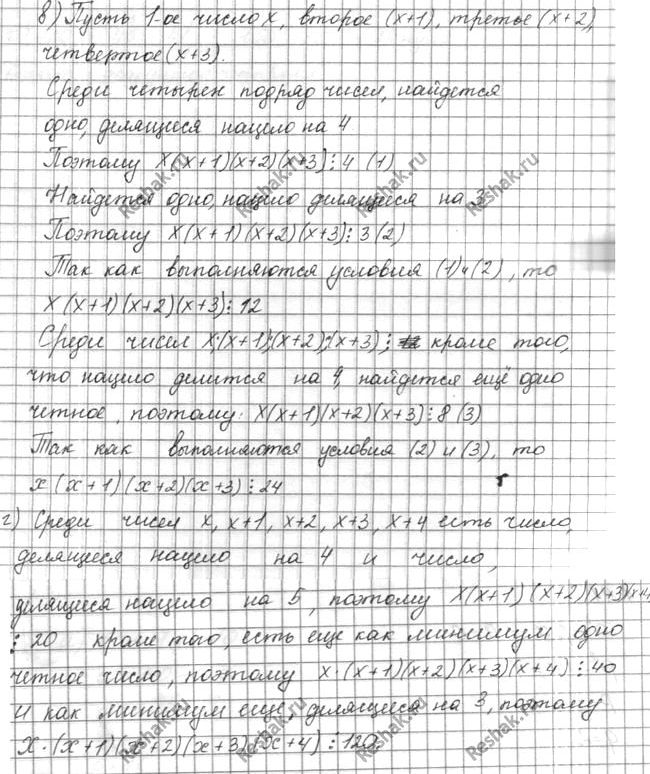 в) Пусть 1-ое число x, второе (x+1), третье (x+2),
четвертое (x+3).
Среди четырех подряд чисел, найдется
одно, делящееся нацело на 4
Поэтому x(x+1)(x+2)(x+3)⋮4 (1)
Найдется одно, нацело делящееся на 3
Поэтому x(x+1)(x+2)(x+3)⋮3 (2)
Так как выполняются условия (1) и (2), то
x(x+1)(x+2)(x+3)⋮12
Среди чисел x;(x+1);(x+2);(x+3); кроме того,
что нацело делится на 4, найдется ещё одно
четное, поэтому: x(x+1)(x+2)(x+3)⋮8 (3)
Так как выполняются условия (2) и (3), то
x(x+1)(x+2)(x+3)⋮24
г) Среди чисел x, x+1, x+2, x+3, x+4 есть число,
делящееся нацело на 4 и число,
делящееся нацело на 5, поэтому x(x+1)(x+2)(x+3)(x+4)
⋮20 кроме того, есть еще как минимум одно
четное число, поэтому x·(x+1)(x+2)(x+3)(x+4)⋮40
и как минимум еще, делящееся на 3, поэтому
x·(x+1)(x+2)(x+3)(x+4)⋮120
Reshak.ru
Reshak.ru
Reshak.ru
Reshak.ru
Reshak.ru
Reshak.ru
Reshak.ru
Reshak.ru
Reshak.ru